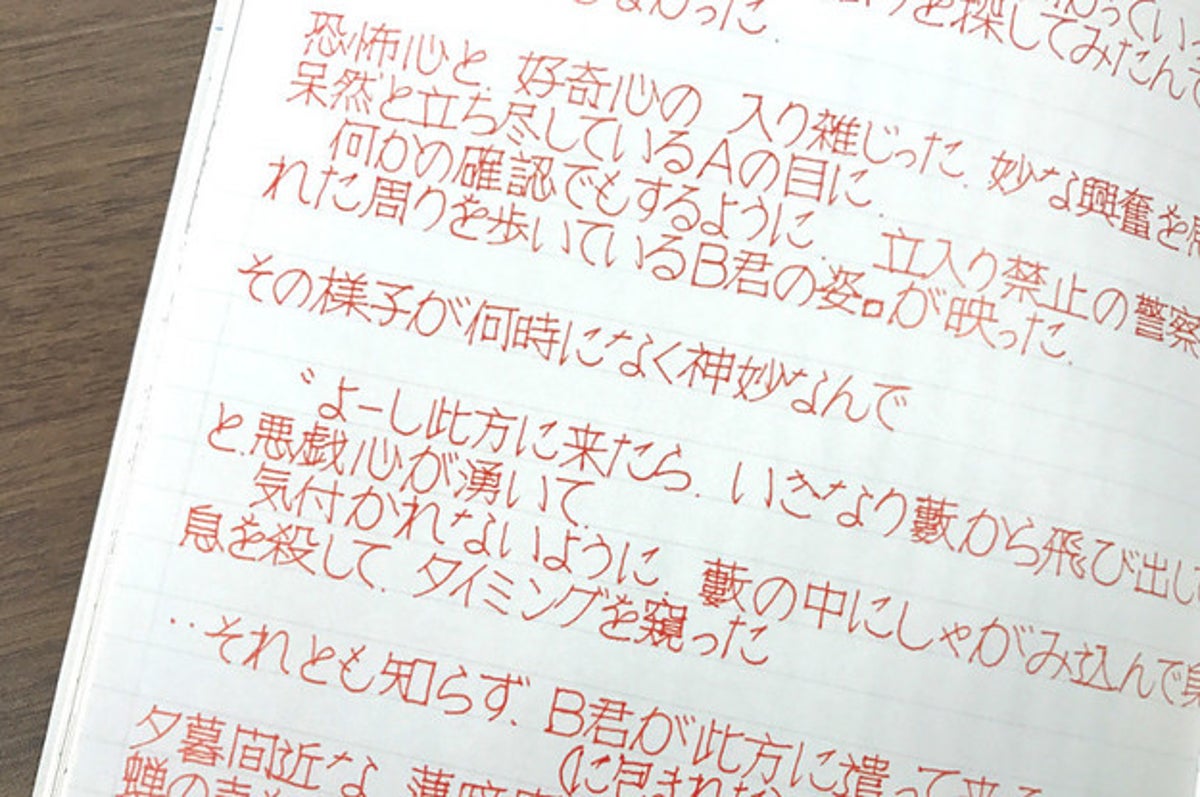 なかった.
を探してみたんだ
恐怖心と, 好奇心の 入り雑じった, 妙な興奮を
呆然と立ち尽しているAの目に,
何かの確認でもするように, 立入り禁止の警察
れた周りを歩いているB君の姿が映った.
その様子が何時になく神妙なんで
〝よーし此方に来たら, いきなり藪から飛び出し
と,悪戯心が湧いて,
気付かれないように, 藪の中にしゃがみ込んで
息を殺して, タイミングを窺った
‥それとも知らず, B君が此方に遣って来る
夕暮間近な, 薄暗
(に包まれた)
蝉の声